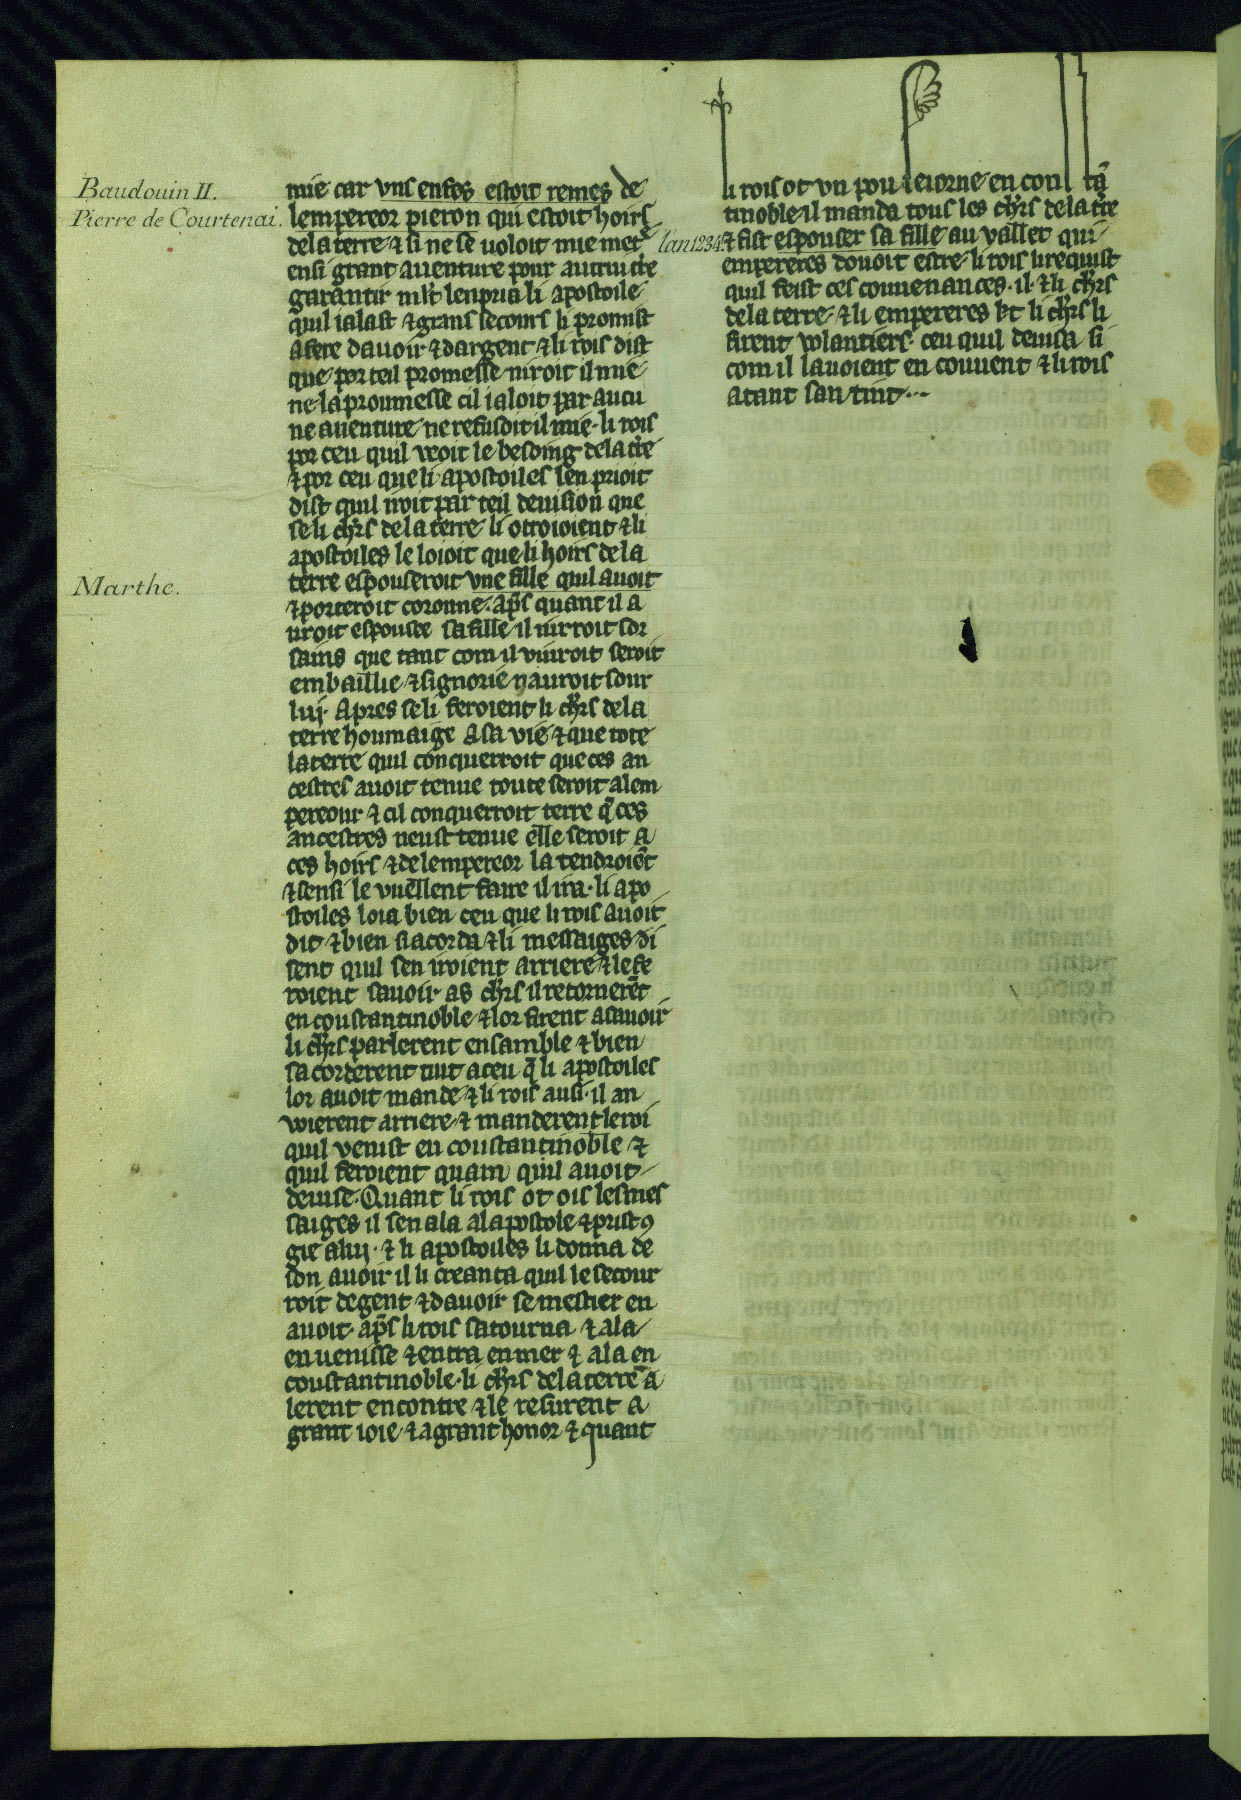 Baudouin II.
Pierre de Courtenai.
Marthe.
mie car vns enfes estoit remes de
lempereor pieron qui estoit hoirs
dela terre ⁊ si ne se uoloit mie metᵉ
ensi grant auenture pour autrui tr̄e
garantir
quil i alast ⁊ grans secours li promist
a fere dauoir ⁊ dargent ⁊ li rois dist
que por teil promesse niroit il mie
ne la proumesse cil i aloit par aucu
ne auenture ne refusdit il mie· li rois
por ceu quil veoit le besoing dela tr̄e
⁊ por ceu que li apostoiles len prioit
dist quil iroit par teil deuision que
se li ch̄rs dela terre li otroioient ⁊ li
apostoiles le loioit que li hoirs de la
terre espouseroit vne fille quil auoit
⁊ porteroit coronne· ap̄s quant il a
uroit espousee sa fille il iurroit sor
sains que tant com il viuroit seroit
em baillie ⁊ signorie nauroit sour
luj· Apres se li feroient li ch̄rs dela
terre houmaige a sa vie ⁊ que tote
la terre quil conquerroit que ces an
cestres auoit tenue toute seroit a lem
pereour ⁊ cil conquerroit terre q̄ ces
ancestres neust tenue elle seroit a
ces hoirs ⁊ de lempereor la tendroiēt
⁊ sensi le vuellent faire il ira· li apo
stoiles loia bien ceu que li rois auoit
dit ⁊ bien si acorda ⁊ li messaiges di
sent quil sen iroient arriere ⁊ le fe
roient sauoir as ch̄rs il retornerēt
en coustantinoble ⁊ lor firent asauoir
li ch̄rs parlerent ensamble ⁊ bien
sacorderent tuit a ceu q̄ li apostoiles
lor auoit mande ⁊ li rois ausi· il an
voierent arriere ⁊ manderent le roi
quil venist en coustantinoble ⁊
quil feroient quam quil auoit
deuise· Quant li rois ot ois les mes
saiges il sen ala a lapostole ⁊ prist ꝯ
gie a luj· ⁊ li apostoiles li donna de
son auoir il li creanta quil le secour
roit de gent ⁊ dauoir se mestier en
auoit· ap̄s li rois satourna ⁊ ala
en uenisse ⁊ entra en mer ⁊ ala en
coustantinoble· li ch̄rs dela terre a
lerent encontre ⁊ le resurent a
grant ioie ⁊ a grant honor ⁊ quant
li rois ot vn pou seiorne en con stā
tinoble il manda tous les ch̄rs de la tr̄e
l'an 1234.
⁊ fist espouser sa fille au vallet qui
empereres douoit estre· li rois
quil feist ces couuenances· il ⁊ li ch̄rs
dela terre ⁊ li empereres ⁊ li ch̄rs li
firent volantiers ceu quil deuisa si
com il lauoient en couuent ⁊ li rois
atant san tint